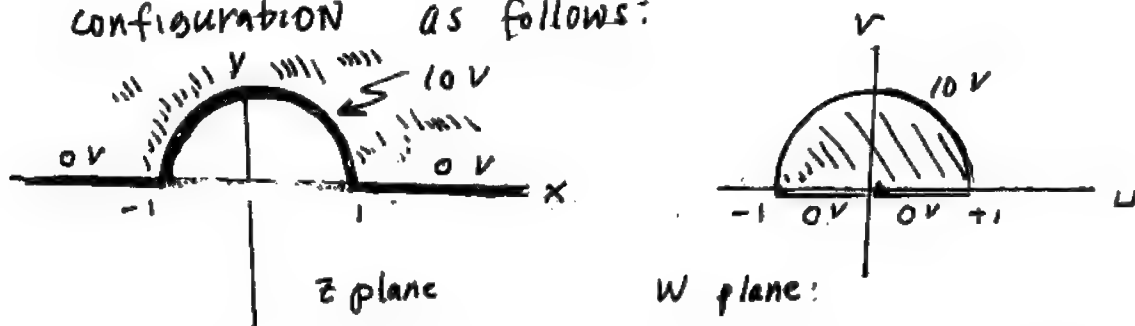 configuration as follows:
y
10 V
0 V
0 V
-1
1
x
z plane
v
10 V
-1
0 V
0 V
+1
u
W plane: